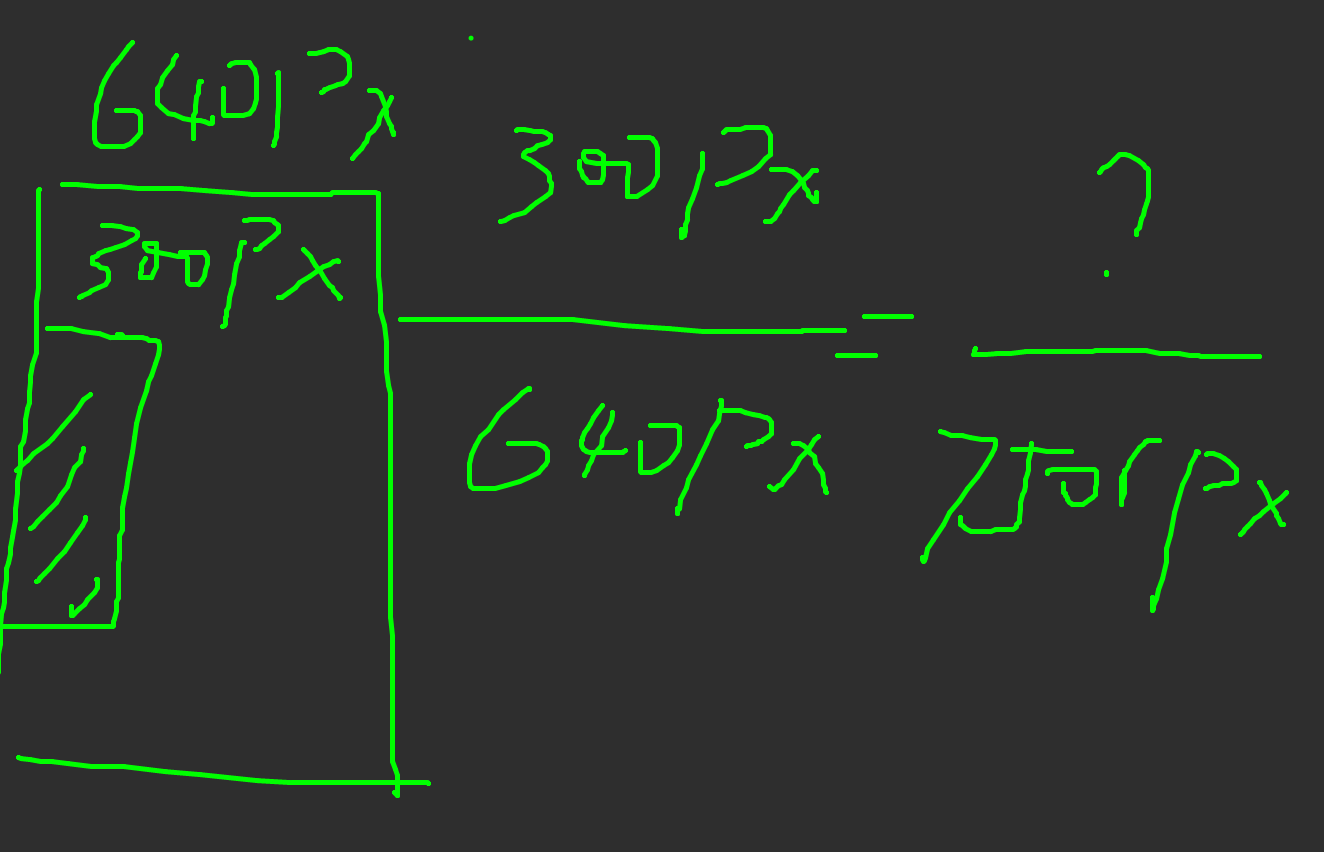 640px
300px
300px
?
=
640px
750rpx